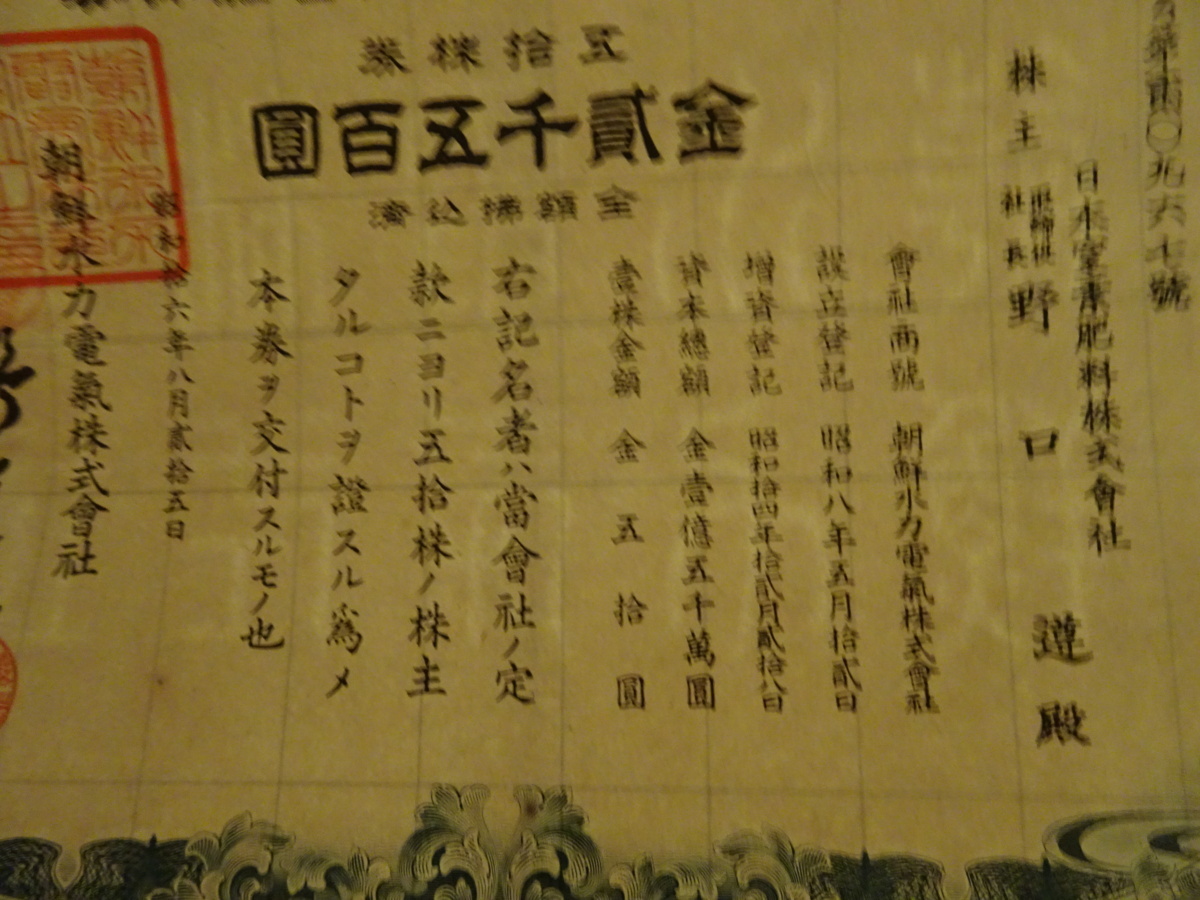 五拾株券
金貳千五百圓
全額拂込濟
九六七號
日本窒素肥料株式會社
株主 社長 野口遵殿
會社商號 朝鮮水力電氣株式會社
設立登記 昭和八年五月拾貳日
增資登記 昭和拾四年拾貳月貳拾八日
資本總額 金壹億五千萬圓
壹株金額 金五拾圓
右記名者ハ當會社ノ定
款ニヨリ五拾株ノ株主
タルコトヲ證スル爲メ
本券ヲ交付スルモノ也
昭和拾六年八月貳拾五日
朝鮮水力電氣株式會社